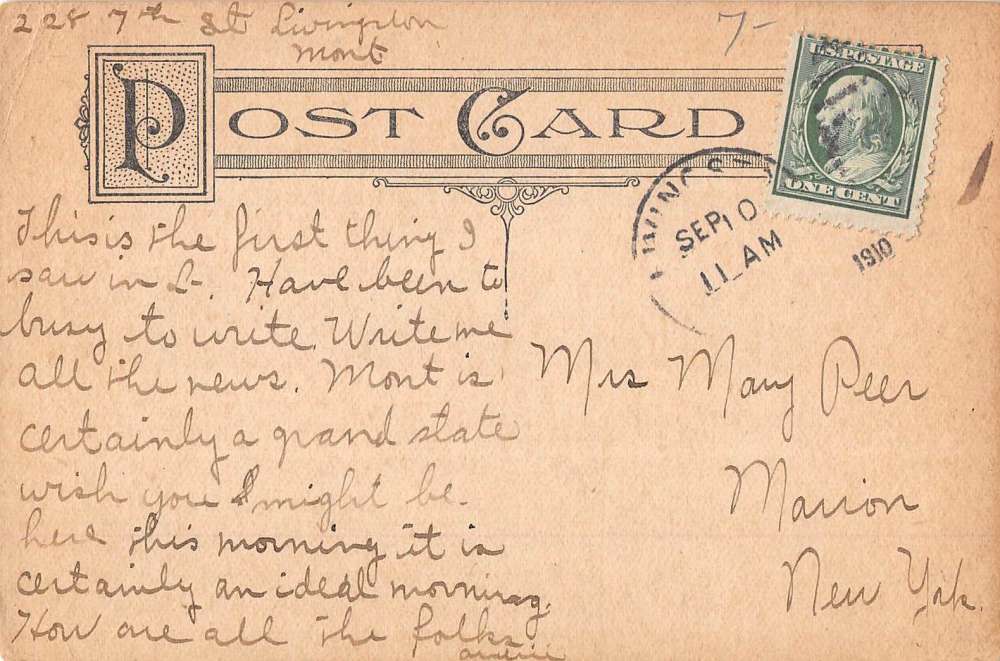 228 7th St Livingston
Mont
7-
POST CARD
U.S. POSTAGE
ONE CENT
SEP 10
11 AM
1910
This is the first thing I
saw in L-. Have been to
busy to write. Write me
all the news. Mont is
certainly a grand state
wish you I might be
here this morning it is
certainly an ideal morning.
How are all the folks
Mrs Mary Peer
Marion
New York.